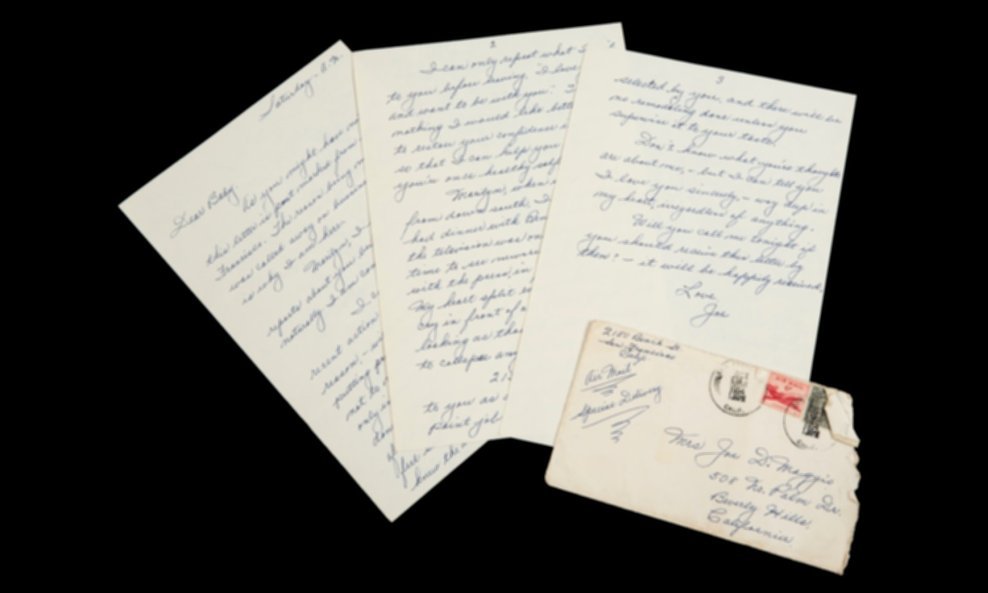 Saturday - A.M.
Dear Baby
As you might have no
this letter is post marked from
Francisco. The reason being
was called away on busine
is why I am here.
Marilyn, I
reports about you
naturally I am con
I
recent action
reason, - w
putting
not
only
know the
2
I can only repeat what I
to you before leaving. "I love
and want to be with you." T
nothing I would like bette
to restore your confidence
so that I can help you
you're once healthy self
Marilyn, when
from down south, I
had dinner with Ben
the television was on
time to see newsre
with the press in
My heart split
cry in front of a
looking as tho
to collapse any
21
to you as
paint job
3
selected by you, and there will be
no remodeling done unless you
supervise it to your taste.
Don't know what you're thoughts
are about me, - but I can tell you
I love you sincerely, - way deep in
my heart, irregardless of anything.
Will you call me tonight if
you should receive this letter by
then? - it will be happily received.
Love,
Joe
2150 Beach St
San Francisco
Calif.
Air Mail
Special Delivery
Mrs Joe D. Maggio
508 No. Palm Dr.
Beverly Hills,
California